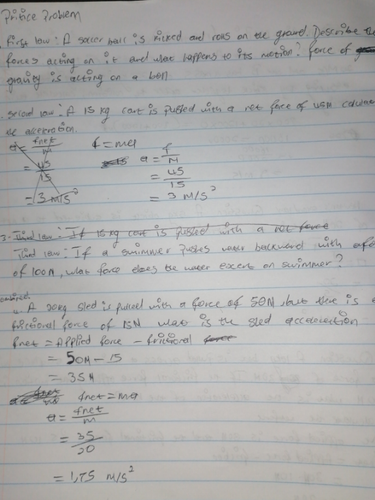 Pratice Problem
First law: A soccer ball is kicked and rolls on the ground. Describe the
forces acting on it and what happens to its motion? force of
gravity is acting on a ball
second law: A 15 kg cart is pushed with a net force of 45N calculate
the acceleration
a = fnet/m
f = ma
= 45/15
a = f/m
= 3 m/s²
= 45/15
= 3 m/s²
3- Third law: If 10 kg cart is pushed with a net force
Third law: If a swimmer pushes water backward with a force
of 100N, what force does the water exert on swimmer?
A 20kg sled is pulled with a force of 50N, but there is a
frictional force of 15N what is the sled acceleration
fnet = Applied force - frictional force
= 50N - 15
= 35N
fnet = ma
a = fnet/m
= 35/20
= 1,75 m/s²